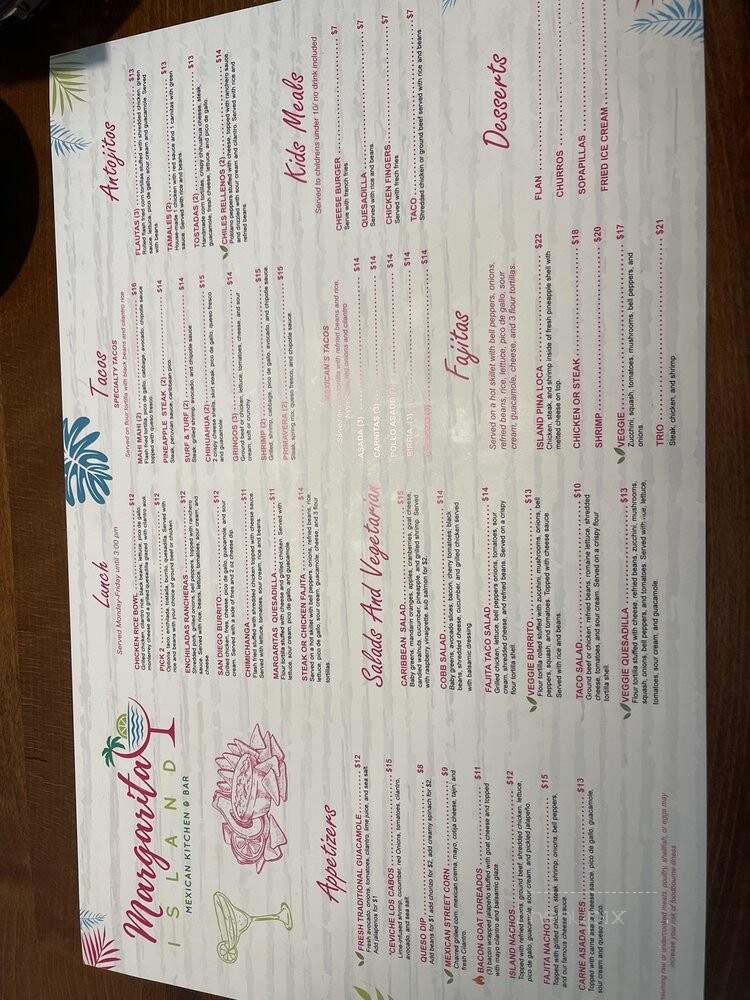 Margarita
ISLAND
MEXICAN KITCHEN & BAR
Appetizers
FRESH TRADITIONAL GUACAMOLE $12
Fresh avocado, onions, tomatoes, cilantro, lime juice, and sea salt.
Add jalapenos for $1
*CEVICHE LOS CABOS $15
Lime-infused shrimp, cucumber, red Onions, tomatoes, cilantro,
avocado, and sea salt
QUESO DIP $8
Add beans for $1 add chorizo for $2, add creamy spinach for $2.
MEXICAN STREET CORN $9
Charred grilled corn, mexican crema, mayo, cotija cheese, tajin, and
fresh Cilantro.
BACON GOAT TOREADOS $11
(3) bacon wrapped jalapeño stuffed with goat cheese and topped
with mayo cilantro and balsamic glaze
ISLAND NACHOS $12
Topped with refried beans, ground beef, shredded chicken, lettuce,
pico de gallo, guacamole, sour cream, and pickled jalapeño.
FAJITA NACHOS $15
Topped with grilled chicken, steak, shrimp, onions, bell peppers,
and our famous cheese sauce.
CARNE ASADA FRIES $13
Topped with carne asada cheese sauce, pico de gallo, guacamole,
sour cream and queso fresco.
raw or undercooked meats, poultry, shellfish, or eggs may
increase your risk of foodbourne illness
Lunch
Served Monday-Friday until 3:00 pm
CHICKEN RICE BOWL $12
Grilled chicken, cilantro rice, black beans, lettuce, pico de gallo,
monterey cheese and a grilled quesadilla glazed with cilantro aioli
PICK 2 $12
Options: taco, enchilada, tostada, burrito, quesadilla. Served with
rice and beans with your choice of ground beef or chicken.
ENCHILADAS RANCHERAS $12
Shredded pork, grilled onions, bell peppers, topped with ranchero
sauce. Served with rice, beans, lettuce, tomatoes, sour cream, and
cheese
SAN DIEGO BURRITO $12
Grilled chicken, fries, cheese, pico de gallo, guacamole, and sour
cream. Served with a side of fries and 2 oz cheese dip
CHIMICHANGA $11
Flash fried stuffed with shredded chicken topped with cheese sauce.
Served with lettuce, tomatoes, sour cream, rice and beans.
MARGARITAS QUESADILLA $11
Flour tortilla stuffed with cheese and grilled chicken. Served with
lettuce, sour cream, pico de gallo, and guacamole
STEAK OR CHICKEN FAJITA $14
Served on a skillet with bell peppers, onions, refried beans, rice,
lettuce, pico de gallo, sour cream, guacamole, cheese, and 3 flour
tortillas.
Salads And Vegetarian
CARIBBEAN SALAD $15
Baby greens, mandarin oranges, apples, cranberries, goat cheese,
candied walnuts, cucumber, pineapple, and grilled shrimp. Served
with raspberry vinaigrette. sub salmon for $2.
COBB SALAD $14
Baby greens, avocado slices, bacon, cherry tomatoes, black
beans, shredded cheese, cucumber, and grilled chicken served
with balsamic dressing
FAJITA TACO SALAD $14
Grilled chicken, lettuce, bell peppers onions, tomatoes, sour
cream, shredded cheese, and refried beans. Served on a crispy
flour tortilla shell.
VEGGIE BURRITO $13
Flour tortilla rolled stuffed with zucchini, mushrooms, onions, bell
peppers, squash, and tomatoes. Topped with cheese sauce.
Served with rice and beans.
TACO SALAD $10
Ground beef or chicken, refried beans, romaine lettuce, shredded
cheese, tomatoes, and sour cream. Served on a crispy flour
tortilla shell.
VEGGIE QUESADILLA $13
Flour tortilla stuffed with cheese, refried beans, zucchini, mushrooms,
squash, onions, bell peppers and tomatoes. Served with rice, lettuce,
tomatoes, sour cream, and guacamole.
Tacos
SPECIALTY TACOS
Served on flour tortilla with black beans and cilantro rice
MAHI MAHI (2) $16
Flash fried tortilla, pico de gallo, cabbage, avocado, chipotle sauce
topped with queso fresco.
PINEAPPLE STEAK (2) $14
Steak, peruvian sauce, caribbean pico
SURF & TURF (2) $14
Steak, grilled shrimp, avocado, and chipotle sauce
CHIHUAHUA (2) $15
2 crispy cheese shells, skirt steak, pico de gallo, queso fresco
GRINGOS (3) $14
Ground beef or chicken, lettuce, tomatoes, cheese, and sour
cream, soft or crunchy.
SHRIMP (2) $15
Grilled, shrimp, cabbage, pico de gallo, avocado, and chipotle sauce.
PRIMAVERA (2) $15
Steak, spring mix, queso fresco, and chipotle sauce.
MEXICAN'S TACOS
tortilla with refried beans and rice,
onions and cilantro
ASADA (3) $14
CARNITAS (3) $14
POLLO ASADO $14
BIRRIA (3) $14
$14
Fajitas
Served on a hot skillet with bell peppers, onions,
refried beans, rice, lettuce, pico de gallo, sour
cream, guacamole, cheese, and 3 flour tortillas.
ISLAND PINA LOCA $22
Chicken, steak, and shrimp inside of fresh pineapple shell with
melted cheese on top.
CHICKEN OR STEAK $18
SHRIMP $20
VEGGIE $17
Zucchini, squash, tomatoes, mushrooms, bell peppers, and
onions.
TRIO $21
Steak, chicken, and shrimp
Antojitos
FLAUTAS (3) $13
Rolled flash fried corn tortillas stuffed with shredded chicken, green
sauce, lettuce, pico de gallo, sour cream and guacamole. Served
with beans.
TAMALES (2) $13
House-made 1 chicken with red sauce and 1 carnitas with green
sauce. Served with rice and beans.
TOSTADAS (2) $13
Handmade corn tortillas, crispy chihuahua cheese, steak,
guacamole, fresh cheese, lettuce, and pico de gallo.
CHILES RELLENOS (2) $14
Poblano peppers stuffed with cheese, topped with ranchero sauce,
and drizzled with sour cream and cilantro. Served with rice and
refried beans.
Kids Meals
Served to childrens under 10/ no drink included
CHEESE BURGER $7
Serve with french fries.
QUESADILLA $7
Served with rice and beans.
CHICKEN FINGERS $7
Served with fresh fries
TACO $7
Shredded chicken or ground beef served with rice and beans.
Desserts
FLAN
CHURROS
SOPAPILLAS
FRIED ICE CREAM